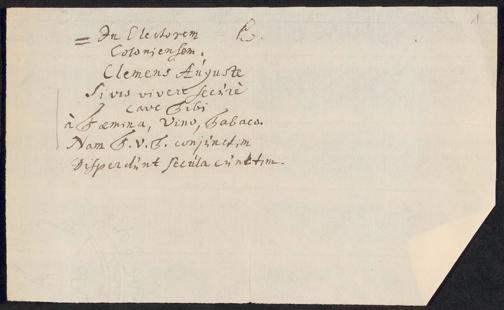 = In Electorem
Coloniensem.
Clemens Auguste
Si vis vivere secùrè
cave Tibi
à Fœmina, Vino, Tabaco.
Nam F. V. T. conjùnctim
Disperdùnt secùla cùnctim.